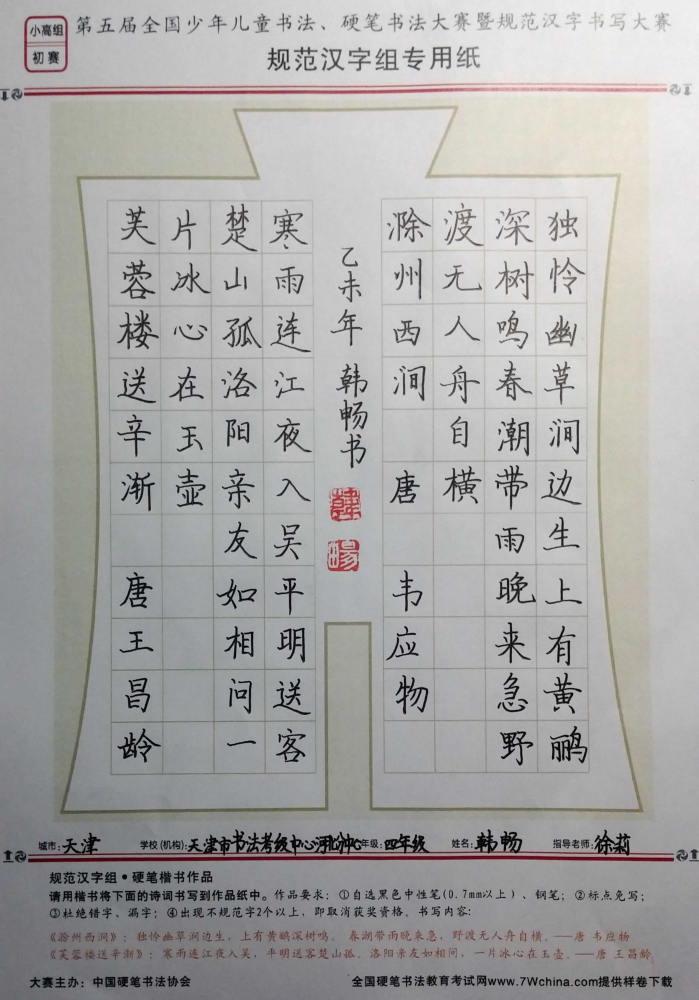 小高组
初赛
第五届全国少年儿童书法、硬笔书法大赛暨规范汉字书写大赛
规范汉字组专用纸
独怜幽草涧边生上有黄鹂
深树鸣春潮带雨晚来急野
渡无人舟自横
滁州西涧 唐 韦应物
乙未年 韩畅书
韩
畅
寒雨连江夜入吴平明送客
楚山孤洛阳亲友如相问一
片冰心在玉壶
芙蓉楼送辛渐 唐王昌龄
城市:天津 学校(机构):天津市书法考级中心河北中心 年级:四年级 姓名:韩畅 指导老师:徐莉
规范汉字组•硬笔楷书作品
请用楷书将下面的诗词书写到作品纸中。作品要求:①自选黑色中性笔(0.7mm以上)、钢笔;②标点免写;
③杜绝错字、漏字;④出现不规范字2个以上,即取消获奖资格。书写内容:
《滁州西涧》:独怜幽草涧边生,上有黄鹂深树鸣。春潮带雨晚来急,野渡无人舟自横。——唐 韦应物
《芙蓉楼送辛渐》:寒雨连江夜入吴,平明送客楚山孤。洛阳亲友如相问,一片冰心在玉壶。——唐 王昌龄
大赛主办:中国硬笔书法协会 全国硬笔书法教育考试网www.7Wchina.com提供样卷下载